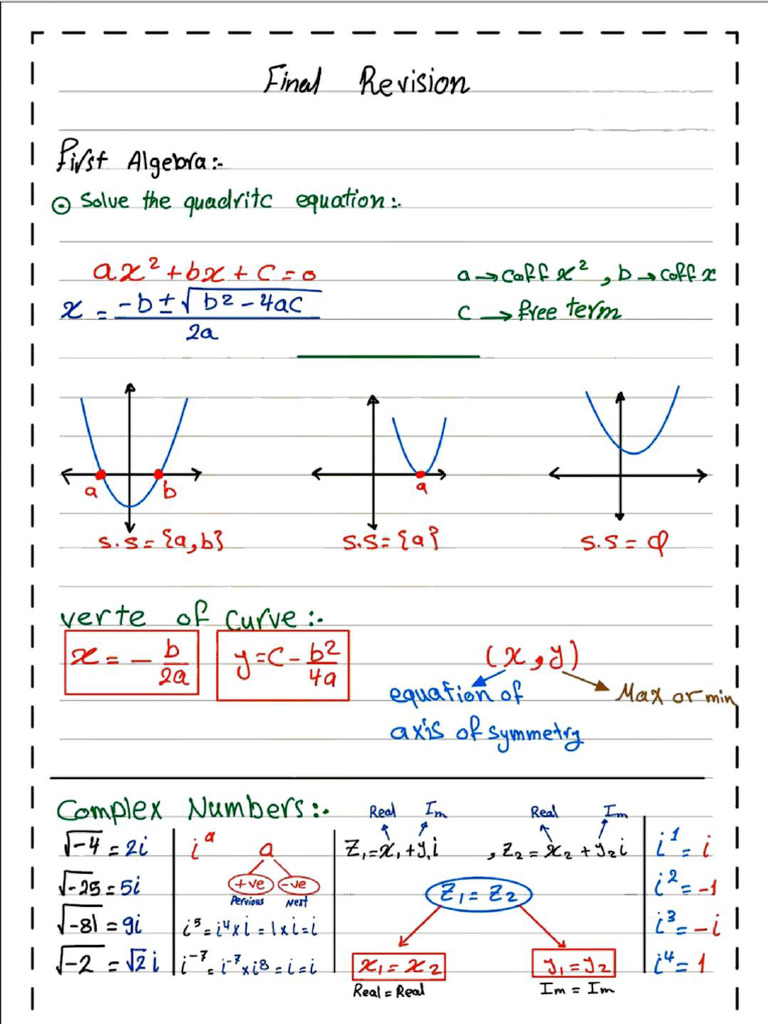 Final Revision
First Algebra:-
⊙ Solve the quadritc equation:-
ax² + bx + c = 0
a → coff x² , b → coff x
x = (-b ± √(b² - 4ac)) / 2a
c → free term
a b
a
S.S = {a,b}
S.S = {a}
S.S = φ
verte of curve:-
x = - b/2a
y = c - b²/4a
(x , y)
equation of
axis of symmetry
Max or min
Complex Numbers:-
√-4 = 2i
√-25 = 5i
√-81 = 9i
√-2 = √2 i
i^a
a
+ve -ve
Pervious Next
i⁵ = i⁴ x i = 1 x i = i
i⁻⁷ = i⁻⁷ x i⁸ = i = i
Real Im
Real Im
Z₁ = x₁ + y₁i , Z₂ = x₂ + y₂i
Z₁ = Z₂
x₁ = x₂
y₁ = y₂
Real = Real
Im = Im
i¹ = i
i² = -1
i³ = -i
i⁴ = 1